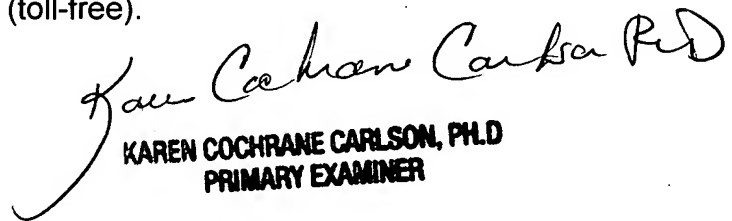 (toll-free).
Karen Cochrane Carlson PhD
KAREN COCHRANE CARLSON, PH.D
PRIMARY EXAMINER